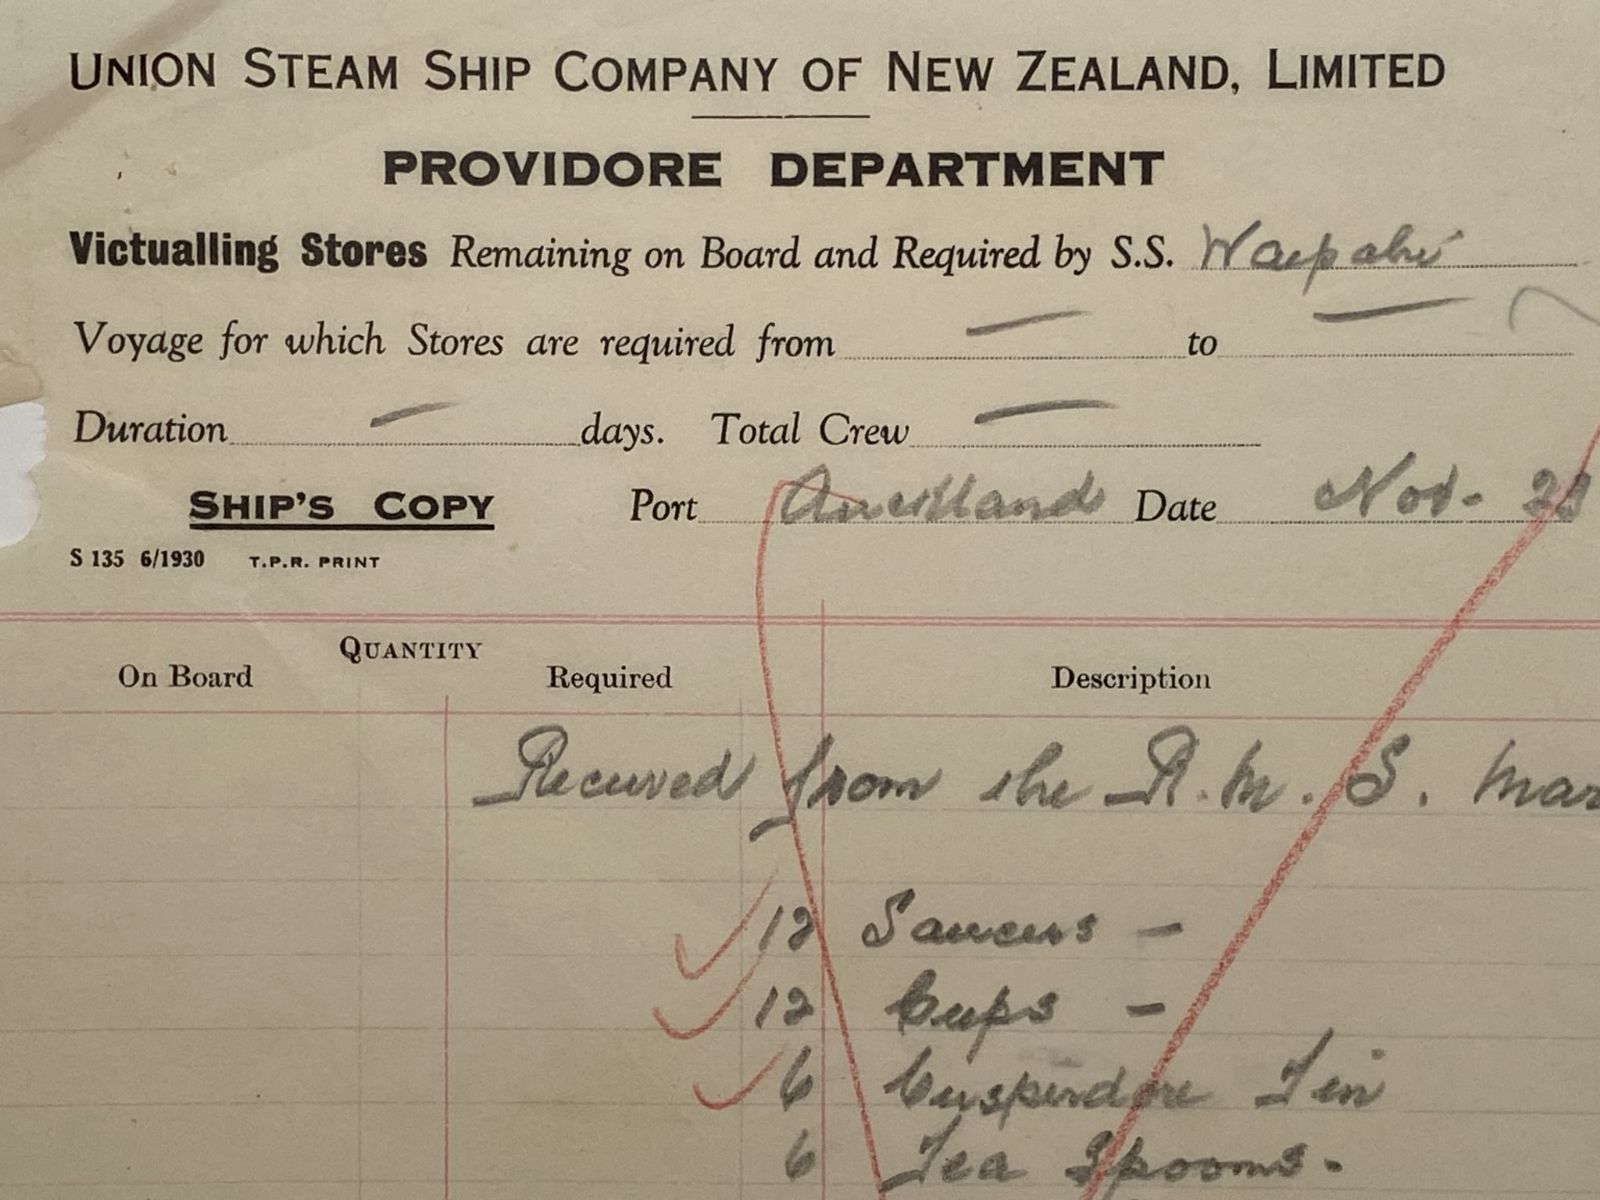 UNION STEAM SHIP COMPANY OF NEW ZEALAND, LIMITED
PROVIDORE DEPARTMENT
Victualling Stores Remaining on Board and Required by S.S. Waipahi
Voyage for which Stores are required from — to —
Duration — days. Total Crew —
SHIP'S COPY Port Auckland Date Nov. 23
S 135 6/1930 T.P.R. PRINT
QUANTITY
On Board Required Description
Received from the R.M.S. Mar
12 Saucers —
12 Cups —
6 Cuspidore Tin
6 Tea Spoons.